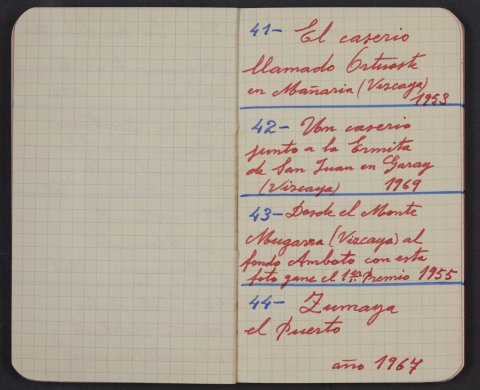 41- El caserio
llamado Ortuoste
en Mañaria (Vizcaya)
1953
42- Un caserio
junto a la Ermita
de San Juan en Garay
(Vizcaya) 1969
43- Desde el Monte
Mugarra (Vizcaya) al
fondo Amboto con esta
foto gane el 1er Premio 1955
44- Zumaya
el Puerto
año 1967